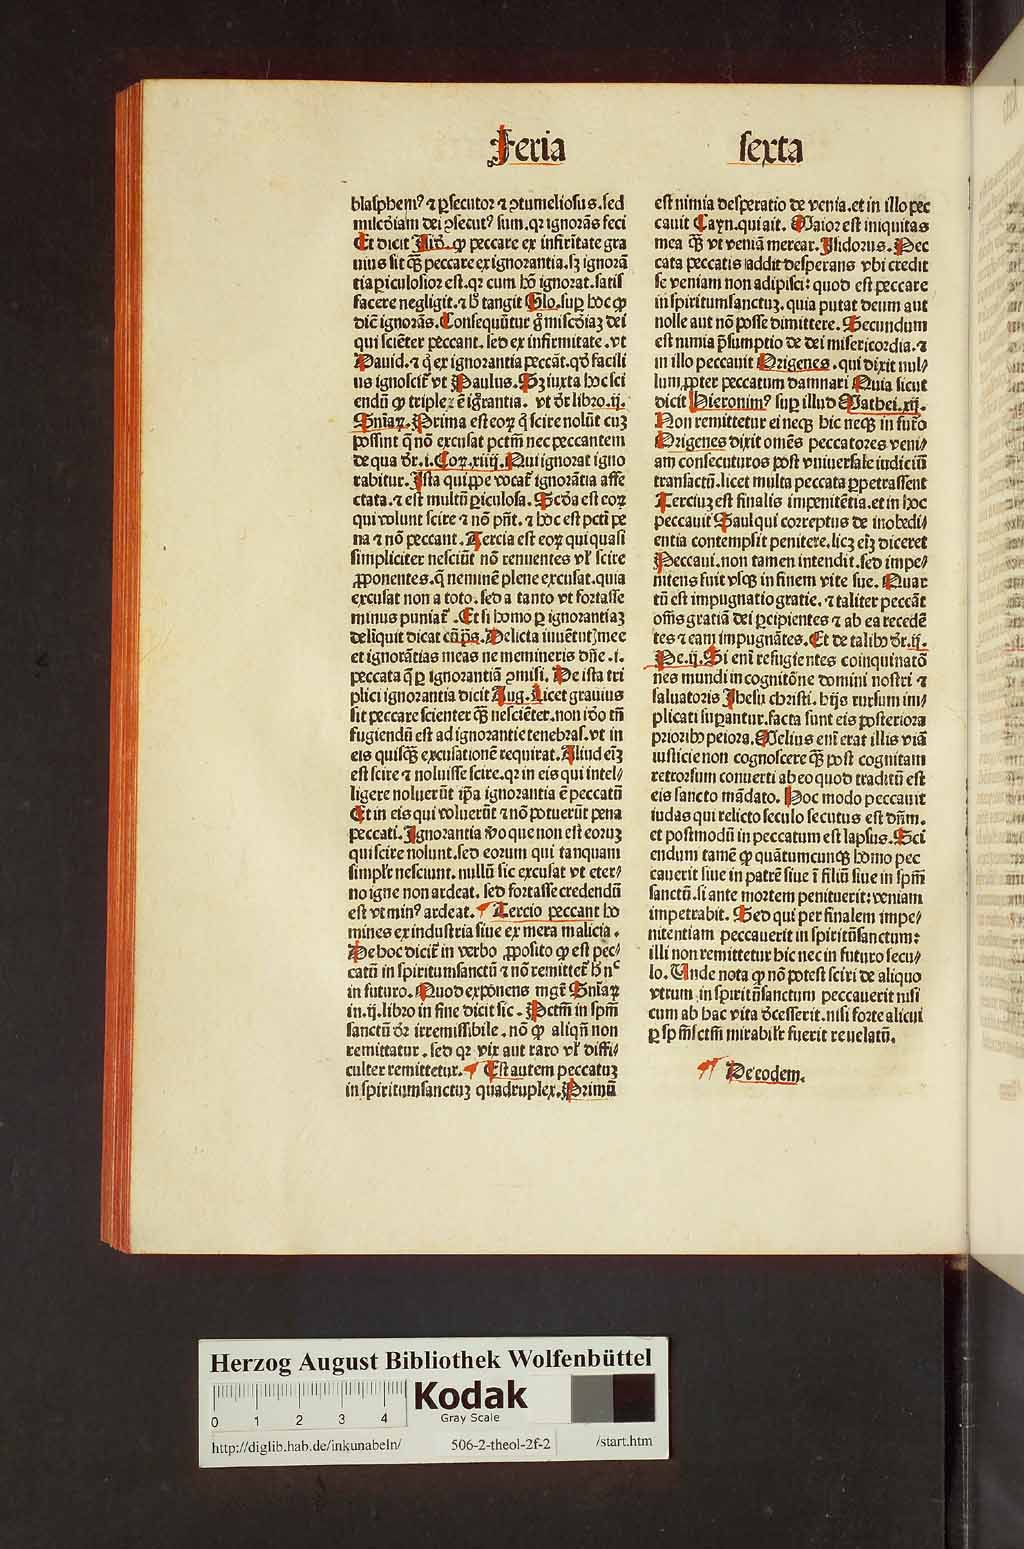 Feria sexta
blasphemꝰ ⁊ ꝑsecutor ⁊ ꝯtumeliosus. sed
miscđiam dei ꝯsecutꝰ sum. qr ignorãs feci
Et dicit Isid̃. ꝙ peccare ex infiritate gra
uius sit q̃ꝫ peccare ex ignorantia. sꝫ ignorã
tia ꝑiculosior est. qr cum hõ ignorat. satis
facere negligit. ⁊ h̃ tangit Glo. suꝑ hoc ꝙ
dic̃ ignorãs. Consequũtur g̃ miscđiaꝫ dei
qui sciẽter peccant. sed ex infirmitate. vt
Dauid. ⁊ q̃ ex ignorantia peccãt. qđ facili
us ignoscit̃ vt Paulus. Sꝫ iuxta hoc sci
endũ ꝙ triplex ẽ ignrantia. vt dr̃ libro .ij.
Sniaꝝ. Prima est eoꝝ q̃ scire nolũt cuꝫ
possint q̃ nõ excusat pctm̃ nec peccantem
de qua dr̃. i. Coꝝ. xiiij. Qui ignorat igno
rabitur. Ista quippe vocat̃ ignorãtia affe
ctata. ⁊ est multũ ꝑiculosa. Scđa est eoꝝ
qui volunt scire ⁊ nõ pñt. ⁊ hoc est pcti pe
na ⁊ nõ peccant. Tercia est eoꝝ qui quasi
simpliciter nesciũt nõ renuentes vl̃ scire
ꝓponentes. q̃ neminẽ plene excusat. quia
excusat non a toto. sed a tanto vt fortasse
minus puniat̃. Et si homo ꝑ ignorantiaꝫ
deliquit dicat cũ ps̃. Delicta iuuentutꝭ mee
et ignorãtias meas ne memineris dñe .i.
peccata q̃ ꝑ ignorantiã ꝯmisi. De ista tri
plici ignorantia dicit Aug. Licet grauius
sit peccare scienter q̃ꝫ nesciẽter. non iđo tñ
fugiendũ est ad ignorantie tenebras. vt in
eis quisq̃ꝫ excusationẽ requirat. Aliud eiꝫ
est scire ⁊ noluisse scire. qr in eis qui intel/
ligere noluerũt ip̃a ignorantia ẽ peccatũ
Et in eis qui voluerũt ⁊ nõ potuerũt pena
peccati. Ignorantia v̊o que non est eoruꝫ
qui scire nolunt. sed eorum qui tanquam
simpl̃r nesciunt. nullũ sic excusat vt eter/
no igne non ardeat. sed fortasse credendũ
est vt minꝰ ardeat. ¶ Tercio peccant ho
mines ex industria siue ex mera malicia.
De hoc dicit̃ in verbo ꝓposito ꝙ est pec/
catũ in spiritumsanctũ ⁊ nõ remittet̃ h̃ nᶜ
in futuro. Quod exponens mgr̃ Sniaꝝ
in .ij. libro in fine dicit sic. Pctm̃ in spm̃
sanctũ dr̃ irremissibile. nõ ꝙ aliqñ non
remittatur. sed qr vix aut raro vl̃ diffi/
culter remittetur. ¶ Est autem peccatuꝫ
in spiritumsanctuꝫ quadruplex. Primũ
est nimia desperatio de venia. et in illo pec
cauit Cayn. qui ait. Maior est iniquitas
mea q̃ꝫ vt veniã merear. Isidorus. Pec
cata peccatis addit desperans vbi credit
se veniam non adipisci: quod est peccare
in spiritumsanctuꝫ. quia putat deum aut
nolle aut nõ posse dimittere. Secundum
est nimia p̃sumptio de dei misericordia. ⁊
in illo peccauit Origenes. qui dixit nul/
lum ꝓpter peccatum damnari Quia sicut
dicit Hieronimꝰ suꝑ illud Mathei. xij.
Non remittetur ei neqꝫ hic neqꝫ in futo
Origenes dixit omẽs peccatores veni/
am consecuturos post vniuersale iudiciũ
transactũ. licet multa peccata ꝑpetrassent
Terciuꝫ est finalis impenitẽtia. et in hoc
peccauit Saul qui correptus de inobedi/
entia contempsit penitere. licꝫ eiꝫ diceret
Peccaui. non tamen intendit. sed impe/
nitens fuit vsqꝫ in finem vite sue. Quar
tũ est impugnatio gratie. ⁊ taliter peccãt
oms̃ gratiã dei ꝑcipientes ⁊ ab ea recedẽ
tes ⁊ eam impugnãtes. Et de talibꝫ dr̃ .ij.
Pe. ij. Si eni refugientes coinquinatõ
nes mundi in cognitõne domini nostri ⁊
saluatoris Jhesu christi. hijs rursum im/
plicati suꝑantur. facta sunt eis posteriora
prioribꝫ peiora. Melius eni erat illis viã
iusticie non cognoscere q̃ꝫ post cognitam
retrorsum conuerti ab eo quod traditũ est
eis sancto mãdato. Hoc modo peccauit
iudas qui relicto seculo secutus est dñm.
et postmodũ in peccatum est lapsus. Sci
endum tamẽ ꝙ quãtumcunqꝫ homo pec
cauerit siue in patrẽ siue ĩ filiũ siue in spm̃
sanctũ. si ante mortem penituerit: veniam
impetrabit. Sed qui per finalem impe/
nitentiam peccauerit in spiritũsanctum:
illi non remittetur hic nec in futuro secu/
lo. Unde nota ꝙ nõ potest sciri de aliquo
vtrum in spiritũsanctum peccauerit nisi
cum ab hac vita đcesserit. nisi forte alicui
ꝑ spm̃sctm̃ mirabil̃r fuerit reuelatũ.
¶ De eodem.
Herzog August Bibliothek Wolfenbüttel
0 1 2 3 4 Kodak
Gray Scale
http://diglib.hab.de/inkunabeln/ 506-2-theol-2f-2 /start.htm